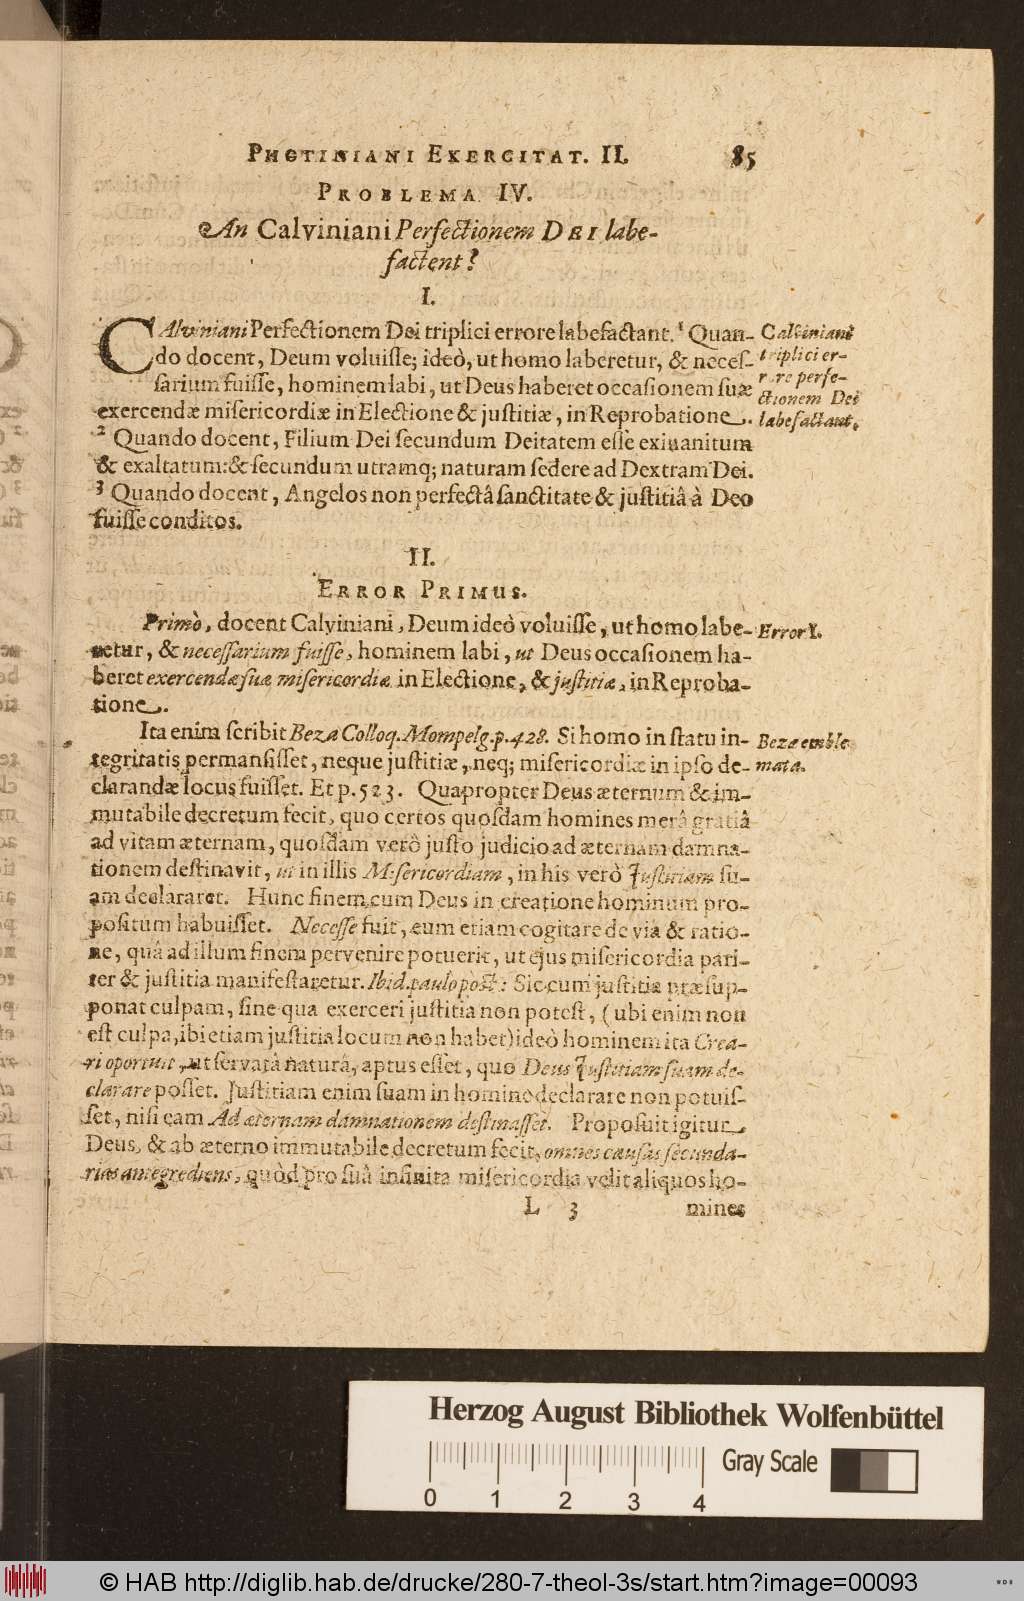 PHOTINIANI EXERCITAT. II. 85
PROBLEMA IV.
An Calviniani Perfectionem DEI labe-
factent?
I.
CAlviniani Perfectionem Dei triplici errore labefactant. ¹ Quan-
do docent, Deum voluisse; ideò, ut homo laberetur, & neces-
sarium fuisse, hominem labi, ut Deus haberet occasionem suæ
exercendæ misericordiæ in Electione & justitiæ, in Reprobatione.
² Quando docent, Filium Dei secundum Deitatem esse exinanitum
& exaltatum: & secundum utramq; naturam sedere ad Dextram Dei.
³ Quando docent, Angelos non perfectâ sanctitate & justitiâ à Deo
fuisse conditos.
Calviniani
triplici er-
rore perfe-
ctionem Dei
labefactant.
II.
ERROR PRIMUS.
Primò, docent Calviniani, Deum ideò voluisse, ut homo labe-
retur, & necessarium fuisse, hominem labi, ut Deus occasionem ha-
beret exercendæ suæ misericordiæ in Electione, & justitiæ, in Reproba-
tione.
Error I.
Ita enim scribit Beza Colloq. Mompelg. p. 428. Si homo in statu in-
tegritatis permansisset, neque justitiæ, neq; misericordiæ in ipso de-
clarandæ locus fuisset. Et p. 523. Quapropter Deus æternum & im-
mutabile decretum fecit, quo certos quosdam homines merâ gratiâ
ad vitam æternam, quosdam verò justo judicio ad æternam damna-
tionem destinavit, ut in illis Misericordiam, in his verò Justitiam su-
am declararet. Hunc finem cum Deus in creatione hominum pro-
positum habuisset. Necesse fuit, eum etiam cogitare de viâ & ratio-
ne, quâ ad illum finem pervenire potuerit, ut ejus misericordia pari-
ter & justitia manifestaretur. Ibid. paulo pòst: Sic cum justitia præsup-
ponat culpam, sine qua exerceri justitia non potest, (ubi enim non
est culpa, ibi etiam justitia locum non habet) ideò hominem ita Crea-
ri oportuit, ut servatâ naturâ, aptus esset, quo Deus Justitiam suam de-
clarare posset. Justitiam enim suam in homine declarare non potuis-
set, nisi eam Ad æternam damnationem destinasset. Proposuit igitur
Deus, & ab æterno immutabile decretum fecit, omnes causas secunda-
rias antegrediens, quòd pro suâ infinita misericordia velit aliquos ho-
Bezæ emble-
mata.
L 3 mines
Herzog August Bibliothek Wolfenbüttel
Gray Scale
0 1 2 3 4
© HAB http://diglib.hab.de/drucke/280-7-theol-3s/start.htm?image=00093